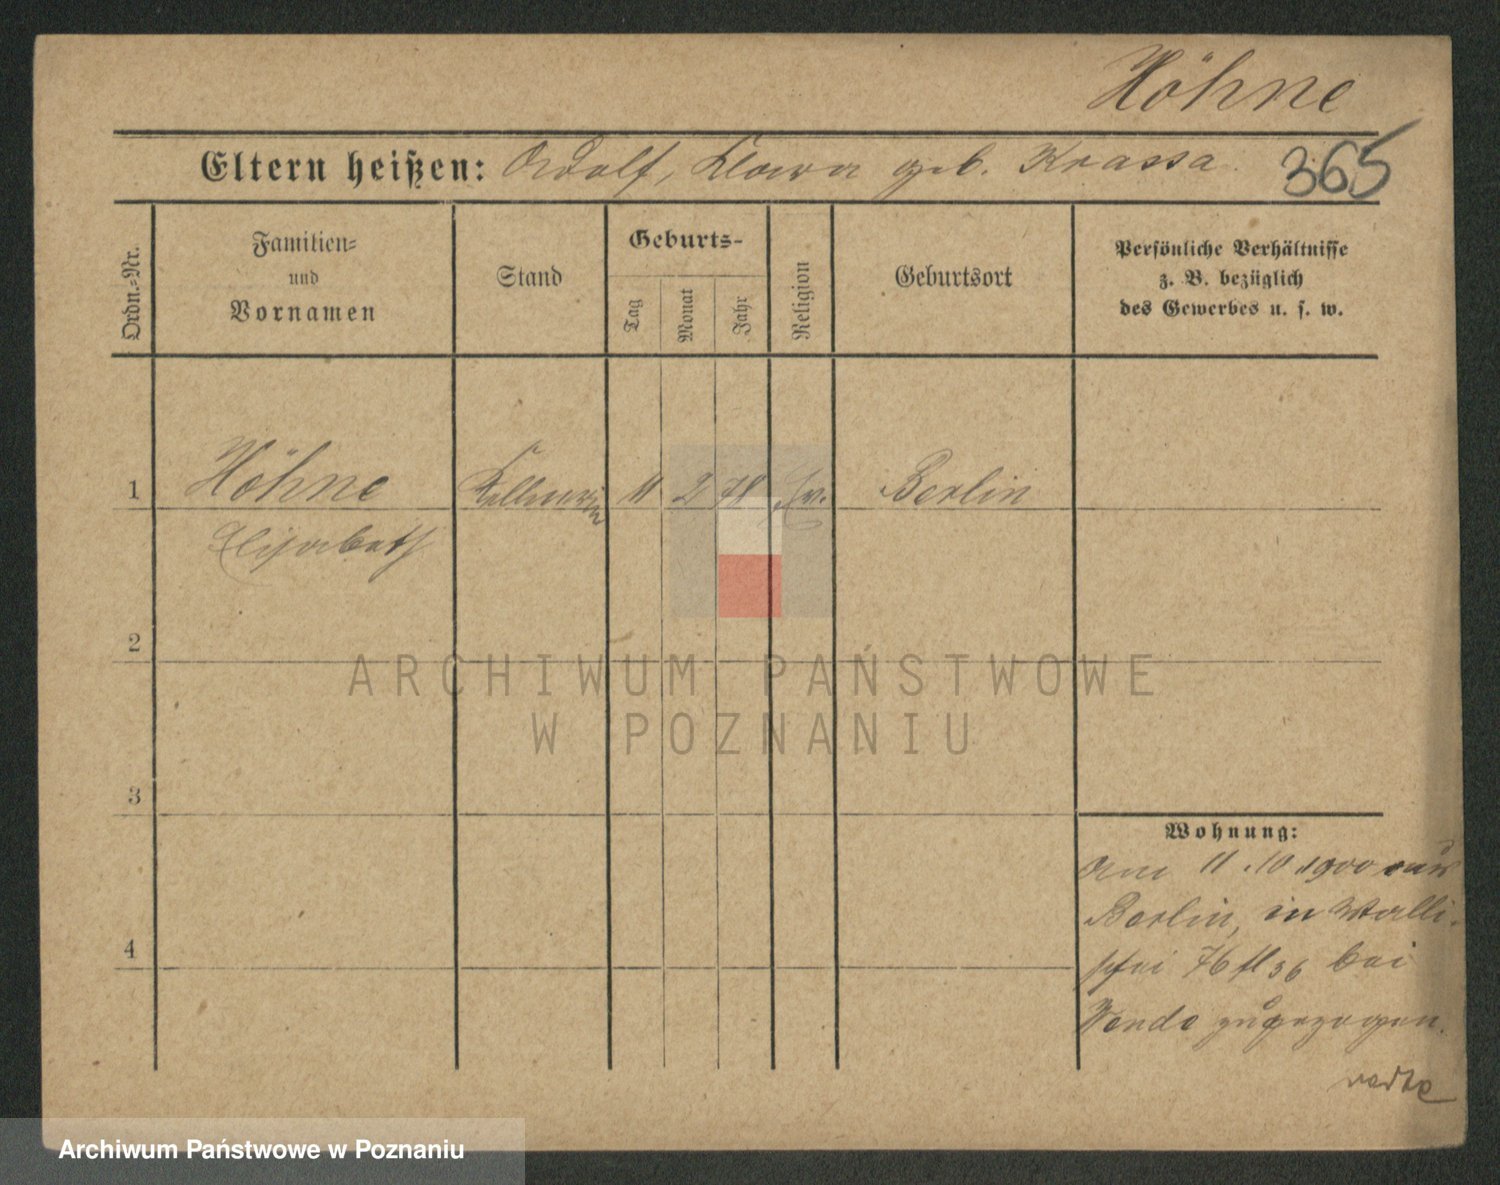 Höhne
Eltern heißen: Adolf, Klara geb. Krassa
365
Ordn.-Nr.
Familien-
und
Vornamen
Stand
Geburts-
Tag
Monat
Jahr
Religion
Geburtsort
Persönliche Verhältnisse
z. B. bezüglich
des Gewerbes u. s. w.
1 Höhne Kellnerin 11 2 78 Ev. Berlin
Elisabeth
2
3
4
Wohnung:
Am 11.10.1900 aus
Berlin, in Walli-
schei 76 bei
zugezogen.
ARCHIWUM PAŃSTWOWE
W POZNANIU
Archiwum Państwowe w Poznaniu